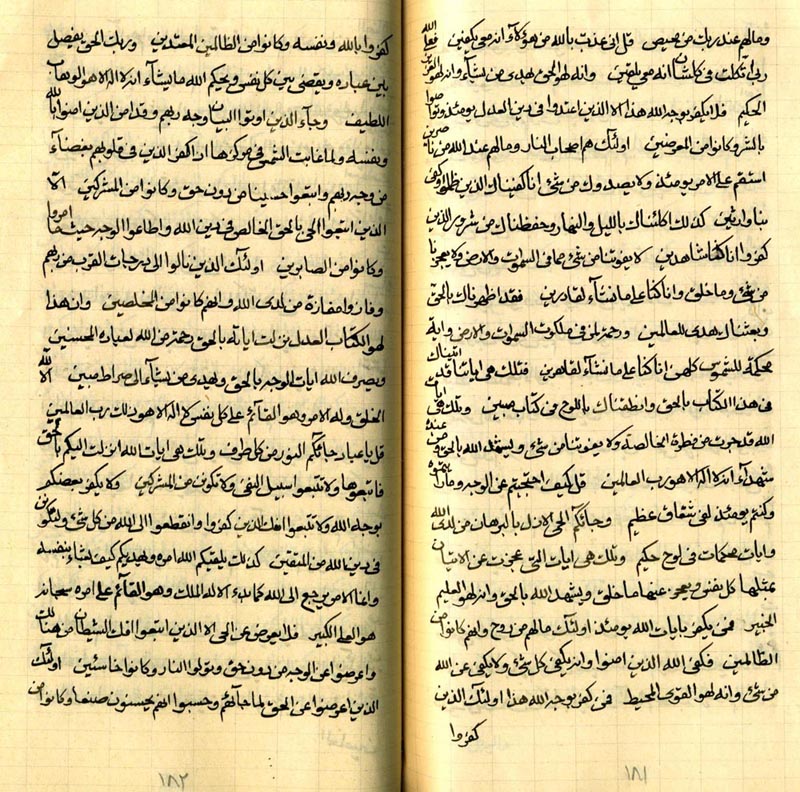 ومالهم عند ربك من محيص قل انى عذت بالله من هؤلاء انه من يكفين فعلى الله
ربى اتكلت فى كل شأن انه وانه لهو الحق يهدى من يشاء وانه لهو العزيز
الحكيم فلا يكفر بوجه الله هذا الا الذين اعتدوا فى دين العدل يومئذ وتواصوا
بالشر وكانوا من المعرضين اولئك هم اصحاب النار ومالهم عند الله من ناصرين
استقم على الامر يومئذ ولا يصدوك من شئ انا كفيناك الذين ظلموا وكفى
بنا وارثين كذلك اكلئناك بالليل والنهار وحفظناك من شرور الذين
كفروا انا كنا شاهدين لا يفوتنا من شئ مما فى السموات والارض ولا يعجزنا
من شئ وما خلق وانا كنا على ما نشاء لقادرين فقد اظهرناك بالحق
وبعثناك هدى للعالمين ورحمة لمن فى ملكوت السموات والارض واية
محكمة للشموس كلهن انا كنا على ما نشاء لقاهرين فتلك هى ايات قد اتيناك
فى هذا الكتاب بالحق وانطقناك باللوح من كتاب مبين وتلك هى ايات
الله قد جرت من فطرة الخالصة ولا يفوتنا من شئ ويشهد الله بالحق ومن عنده
شهداء انه لا اله الا هو رب العالمين قل كيف احتجبتم عن الوجه وما رايتموه
وكنتم يومئذ لفى شقاق عظيم وجائكم الحى الازل بالبرهان من لدى الله
وايات محكمات فى لوح حكيم وتلك هى ايات التى عجزت عن الاتيان
بمثلها كل نفس ويعجز عنها ما خلق ويشهد الله بالحق وانه لهو العليم
الخبير فمن يكفر بايات الله يومئذ اولئك مالهم من روح وانهم كانوا من
الظالمين فكفى الله الذين امنوا وانه يكفى كل شئ ولا يكفى عن الله
من شئ وانه لهو القوى المحيط فمن كفر بوجه الله هذا اولئك الذين
كفروا
١٨١
كفروا بالله ونفسه وكانوا من الظالمين المعتدين وربك الحق يفصل
بين عباده ويقضى بين كل نفس ويحكم الله ما يشاء انه لا اله الا هو الوهاب
اللطيف وجاء الذين اوتوا البيان وجه ربهم وقد امن الذين امنوا بالله
ونفسه ولما غابت الشمس فى مركزها اذا كفر الذين فى قلوبهم بغضاء
من وجه ربهم واتبعوا من دون حق وكانوا من المشركين الا
الذين اتبعوا الحى بالحق الخالص فى دين الله واطاعوا الوجه حيث ما امروا
وكانوا من الصابرين اولئك الذين نالوا الى درجات القرب من ربهم
وفازوا مفازة من لدى الله وانهم كانوا من المخلصين وان هذا
لهو الكتاب العدل نزلت اياته بالحق رحمة من الله لعباده المحسنين
ويصرف الله ايات الوجه بالحق ويهدى من يشاء الى صراط مبين الا لله
الخلق وله الامر وهو القائم على كل نفس لا اله الا هو ذلك رب العالمين
قل يا عباد جائكم النور من كل طرف وتلك هى ايات الله انزلت اليكم بالحق
فاتبعوها ولا تتبعوا سبيل البغى ولا تكونن من المشركين ولا يكفر بعضكم
بوجه الله ولا تتبعوا افك الذين كفروا وانقطعوا الى الله من كل شئ ولتكونن
فى دين الله من المتقين كذلك يلقيكم الله امره ويهديكم كيف يشاء بنفسه
وانما الامر يرجع الى الله كما بدء الا له الملك وهو القائم على امره سبحانه
هو العلى الكبير فلا يعرض عن الحى الا الذين اتبعوا افك الشيطان من هنالك
واعرضوا عن الوجه من دون حق وتولى النار وكانوا خاسئين اولئك
الذين اعرضوا عن الحق لما جائهم وحسبوا انهم يحسنون صنعا وكانوا من
١٨٢